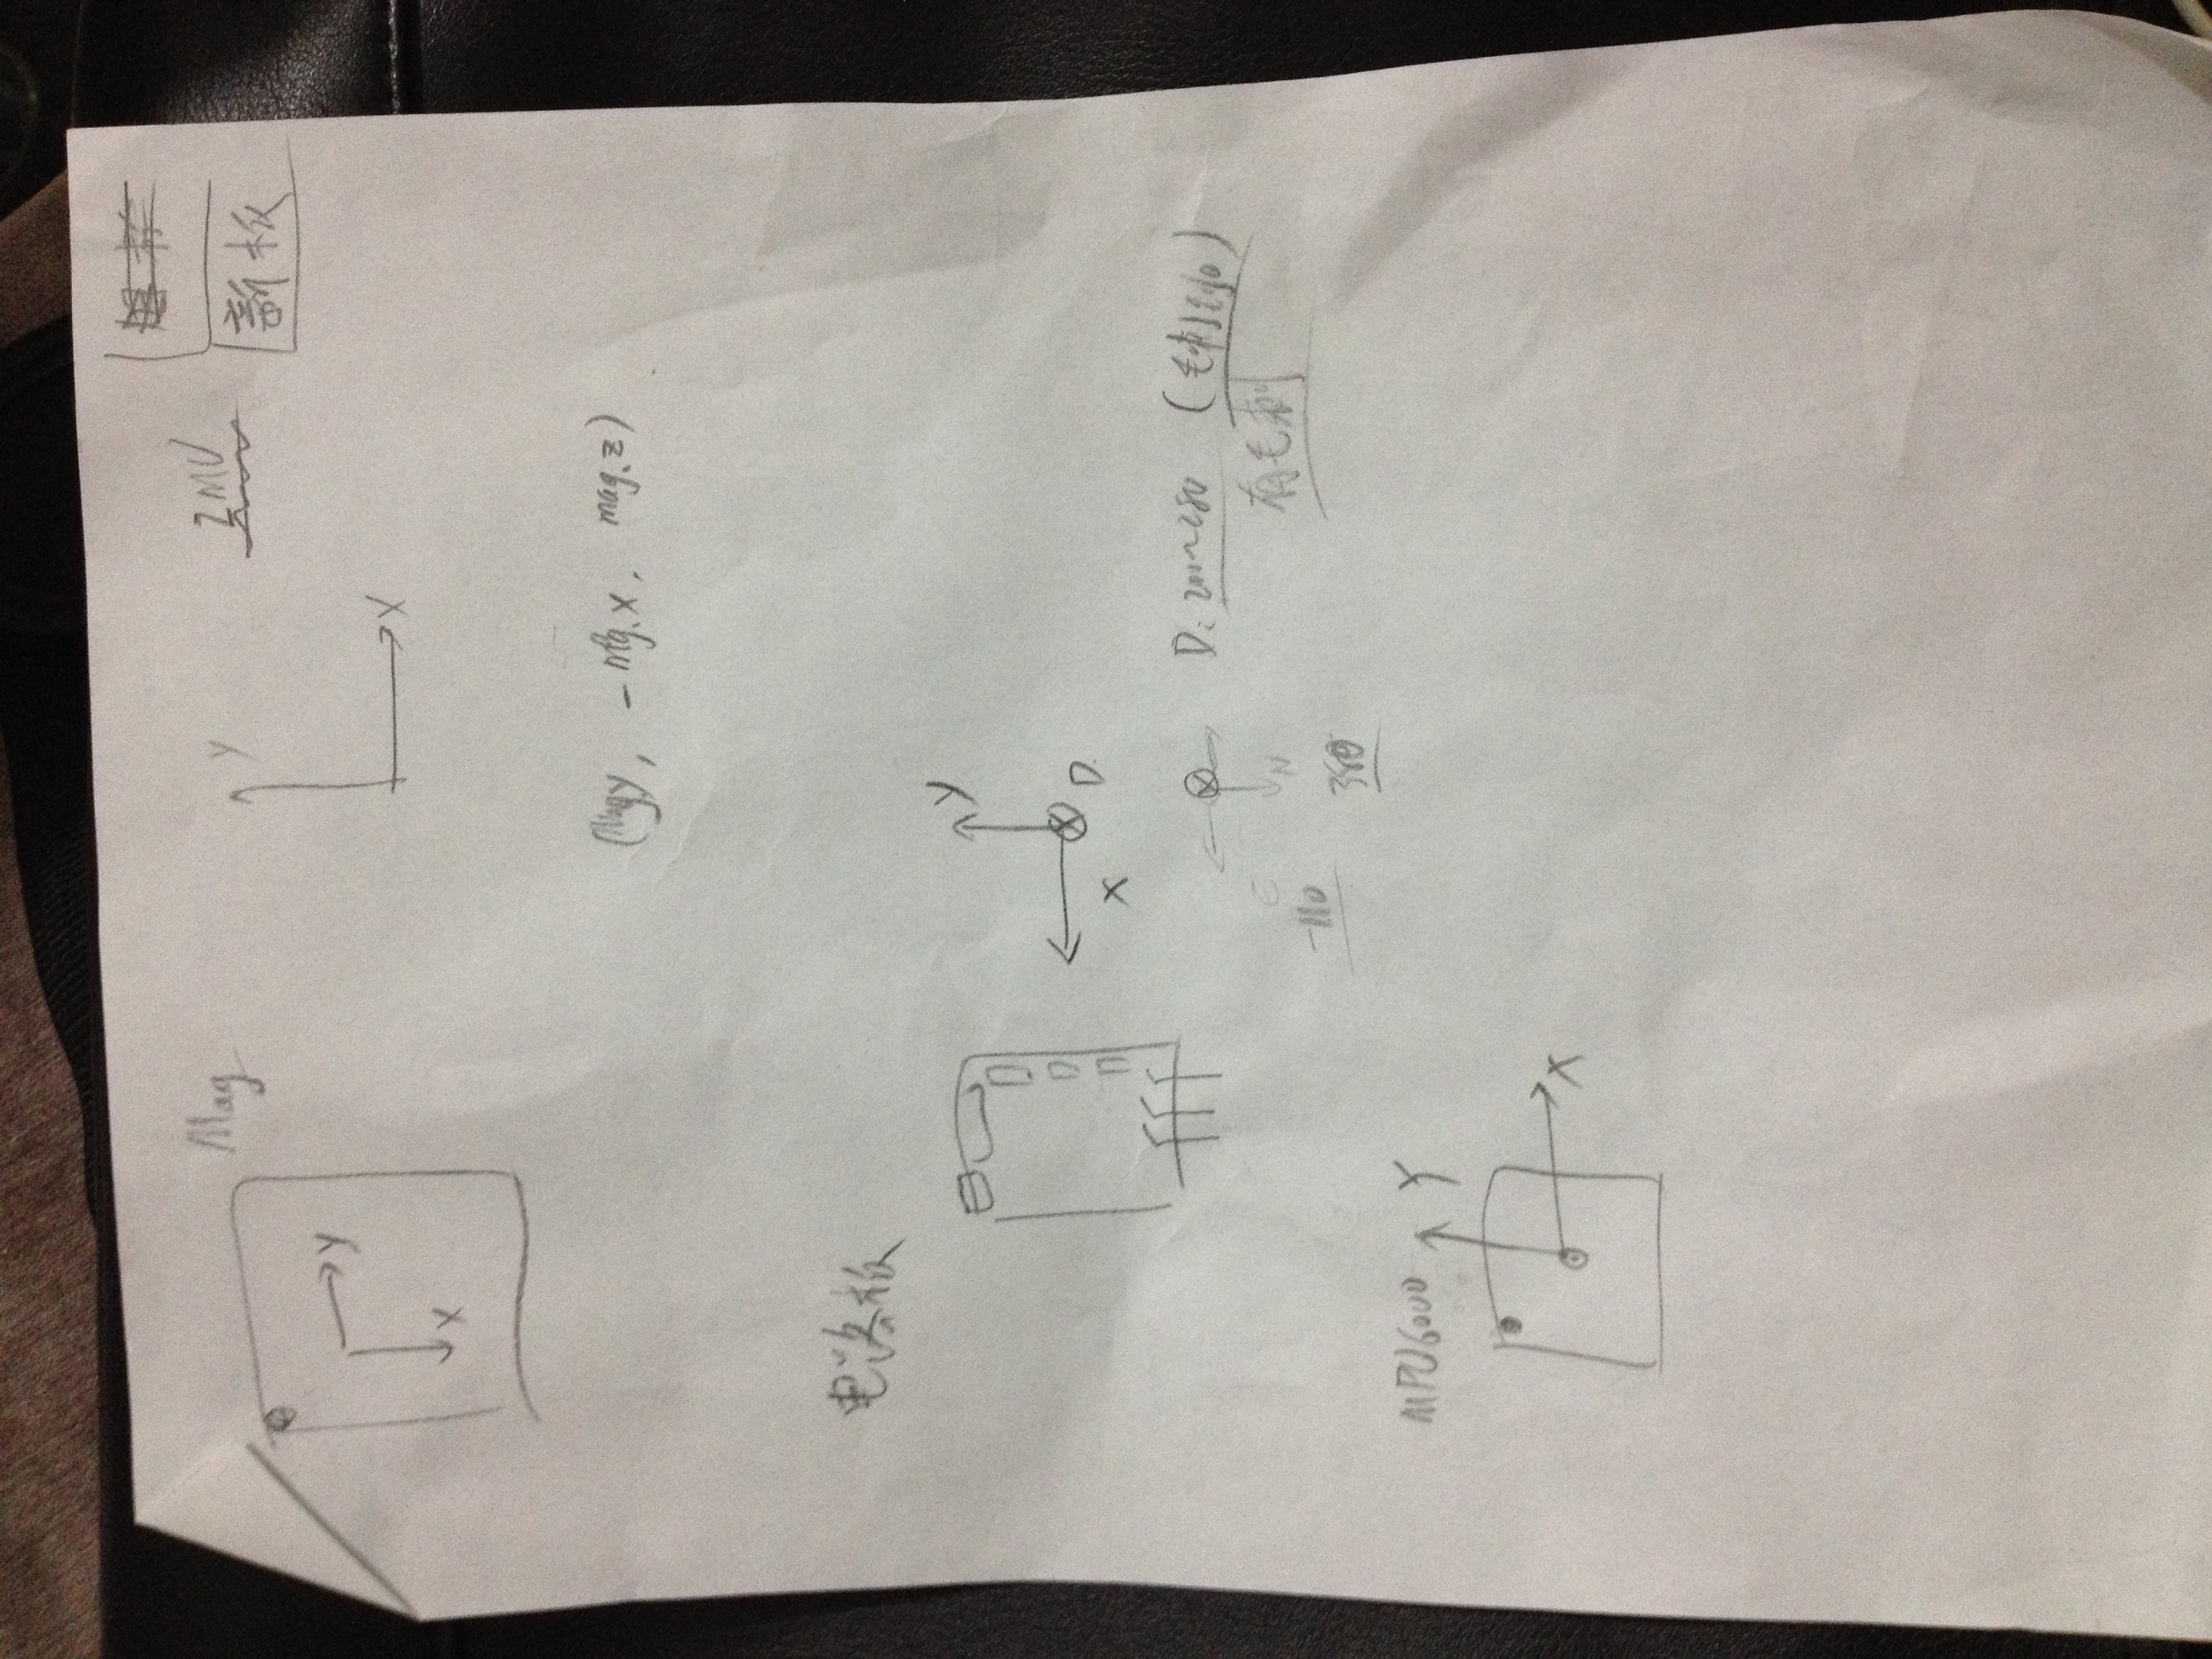 Mag
Y
X
Y
X
IMU
新板
(Mag.y, -Mag.x, mag.z)
电路板
Y
X
D.
D: 200~280
有毛刺
E
N
-110
380
MPU6000
Y
X